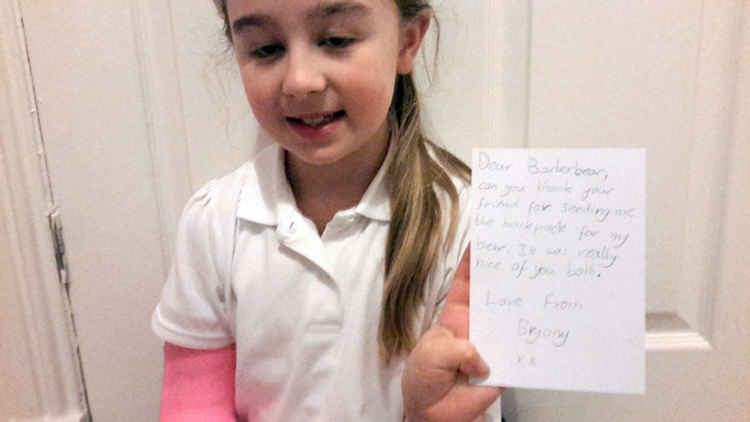 Dear Barterbear,
can you thank your
friend for sending me
the backpack for my
bear. It was really
nice of you both.
Love From
Bryony
x x